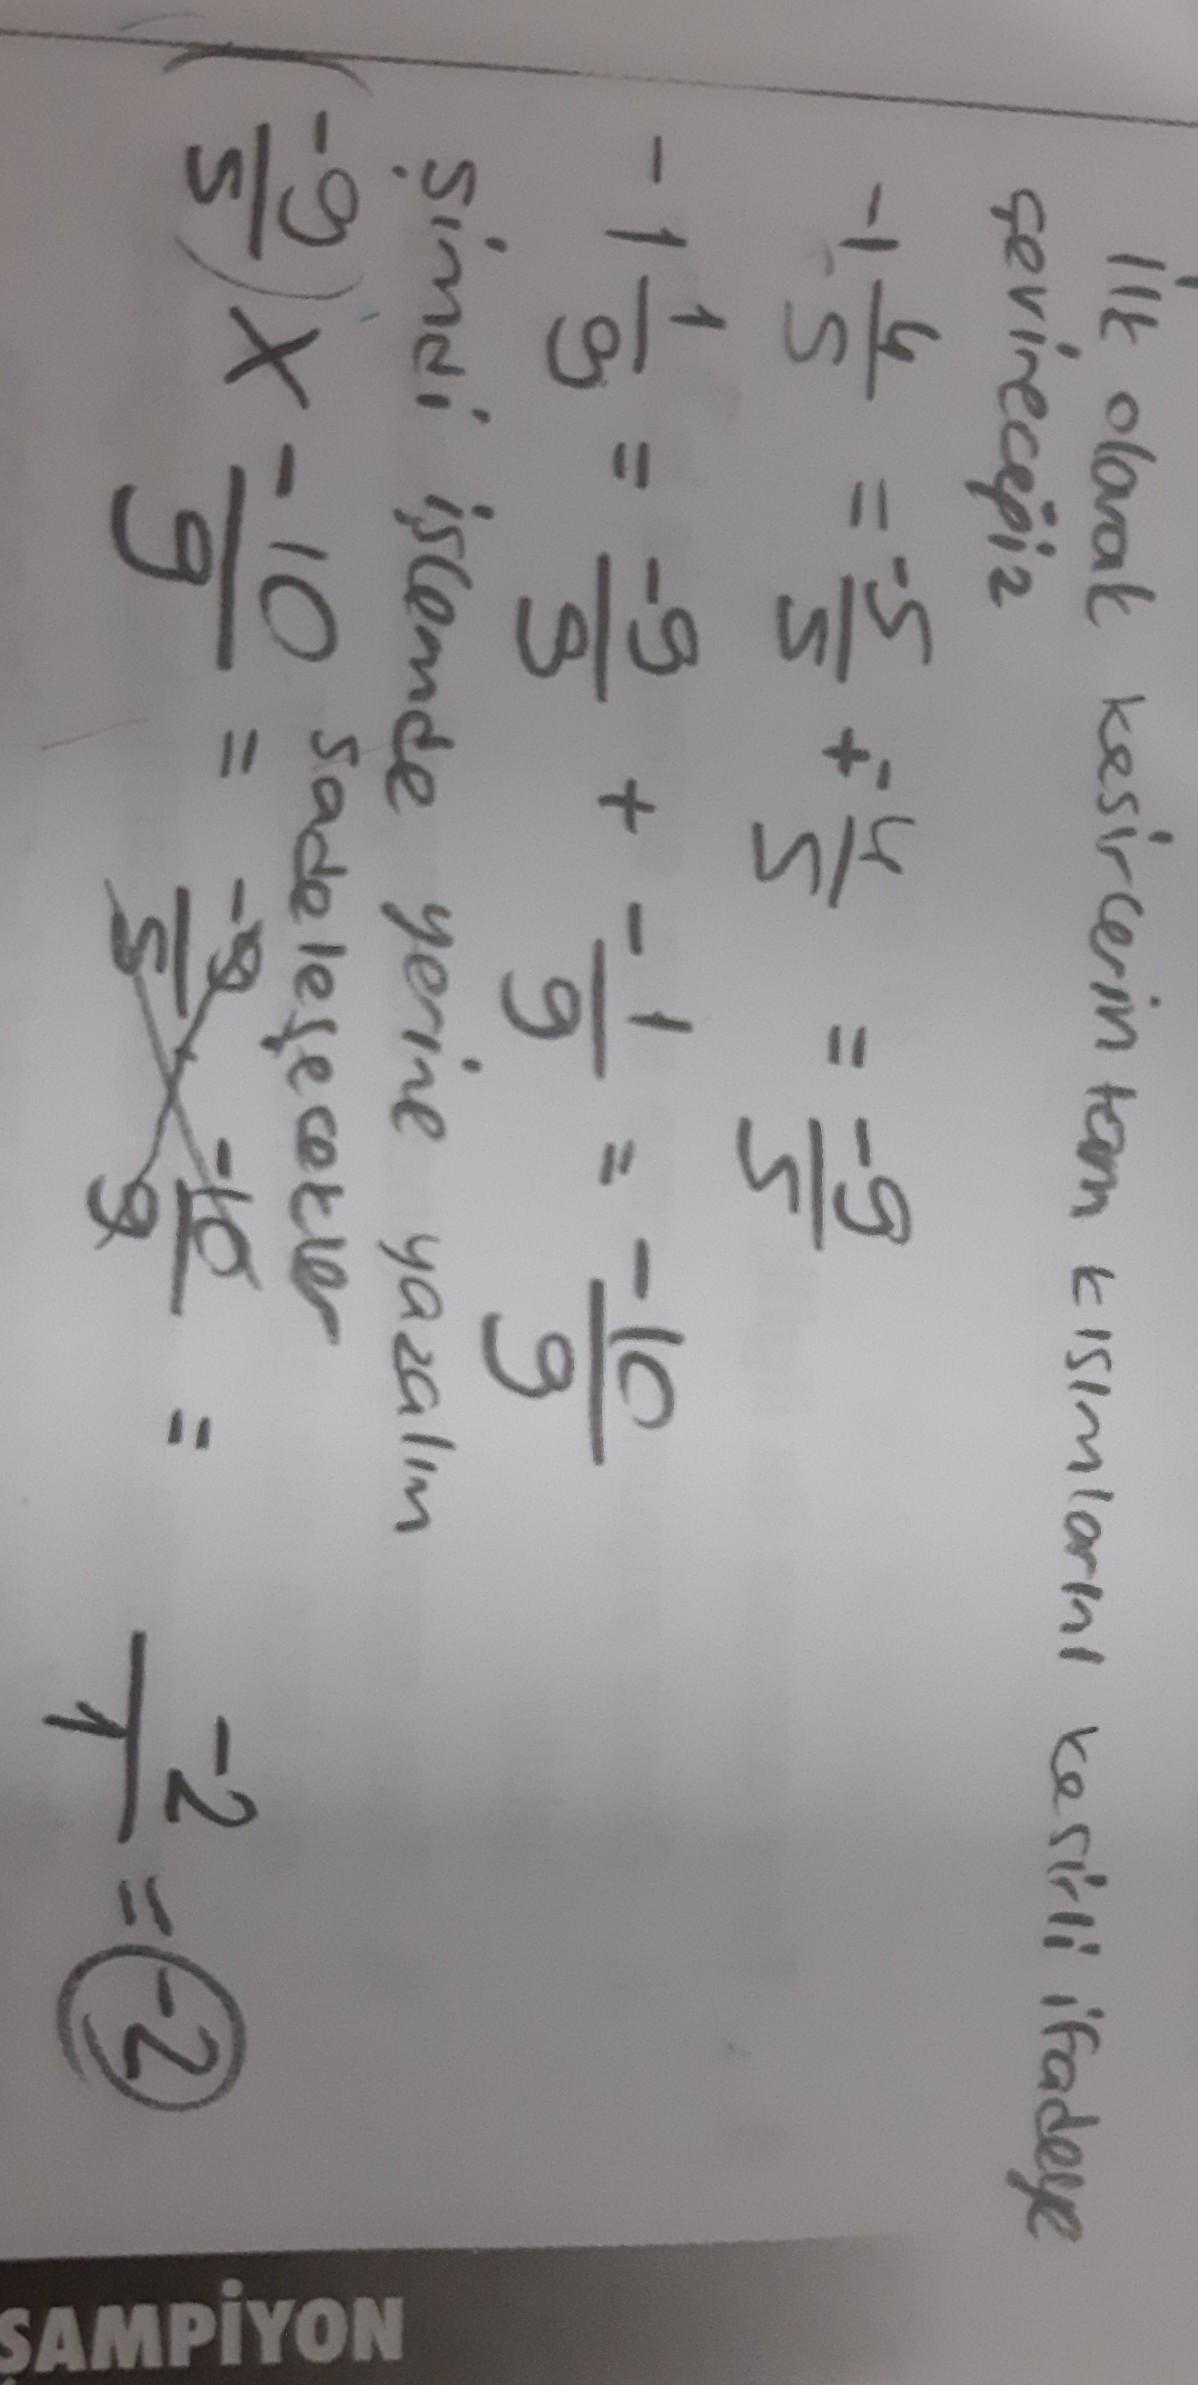 İlk olarak kesirlerin tam kısımlarını kesirli ifadeye
çevireceğiz
-1 4/5 = -5/5 + -4/5 = -9/5
-1 1/9 = -9/9 + -1/9 = -10/9
Şimdi işlemde yerine yazalım
(-9/5) x -10/9 = -9/5 -10/9 = -2/1 = -2
sadeleşecekler
ŞAMPİYON